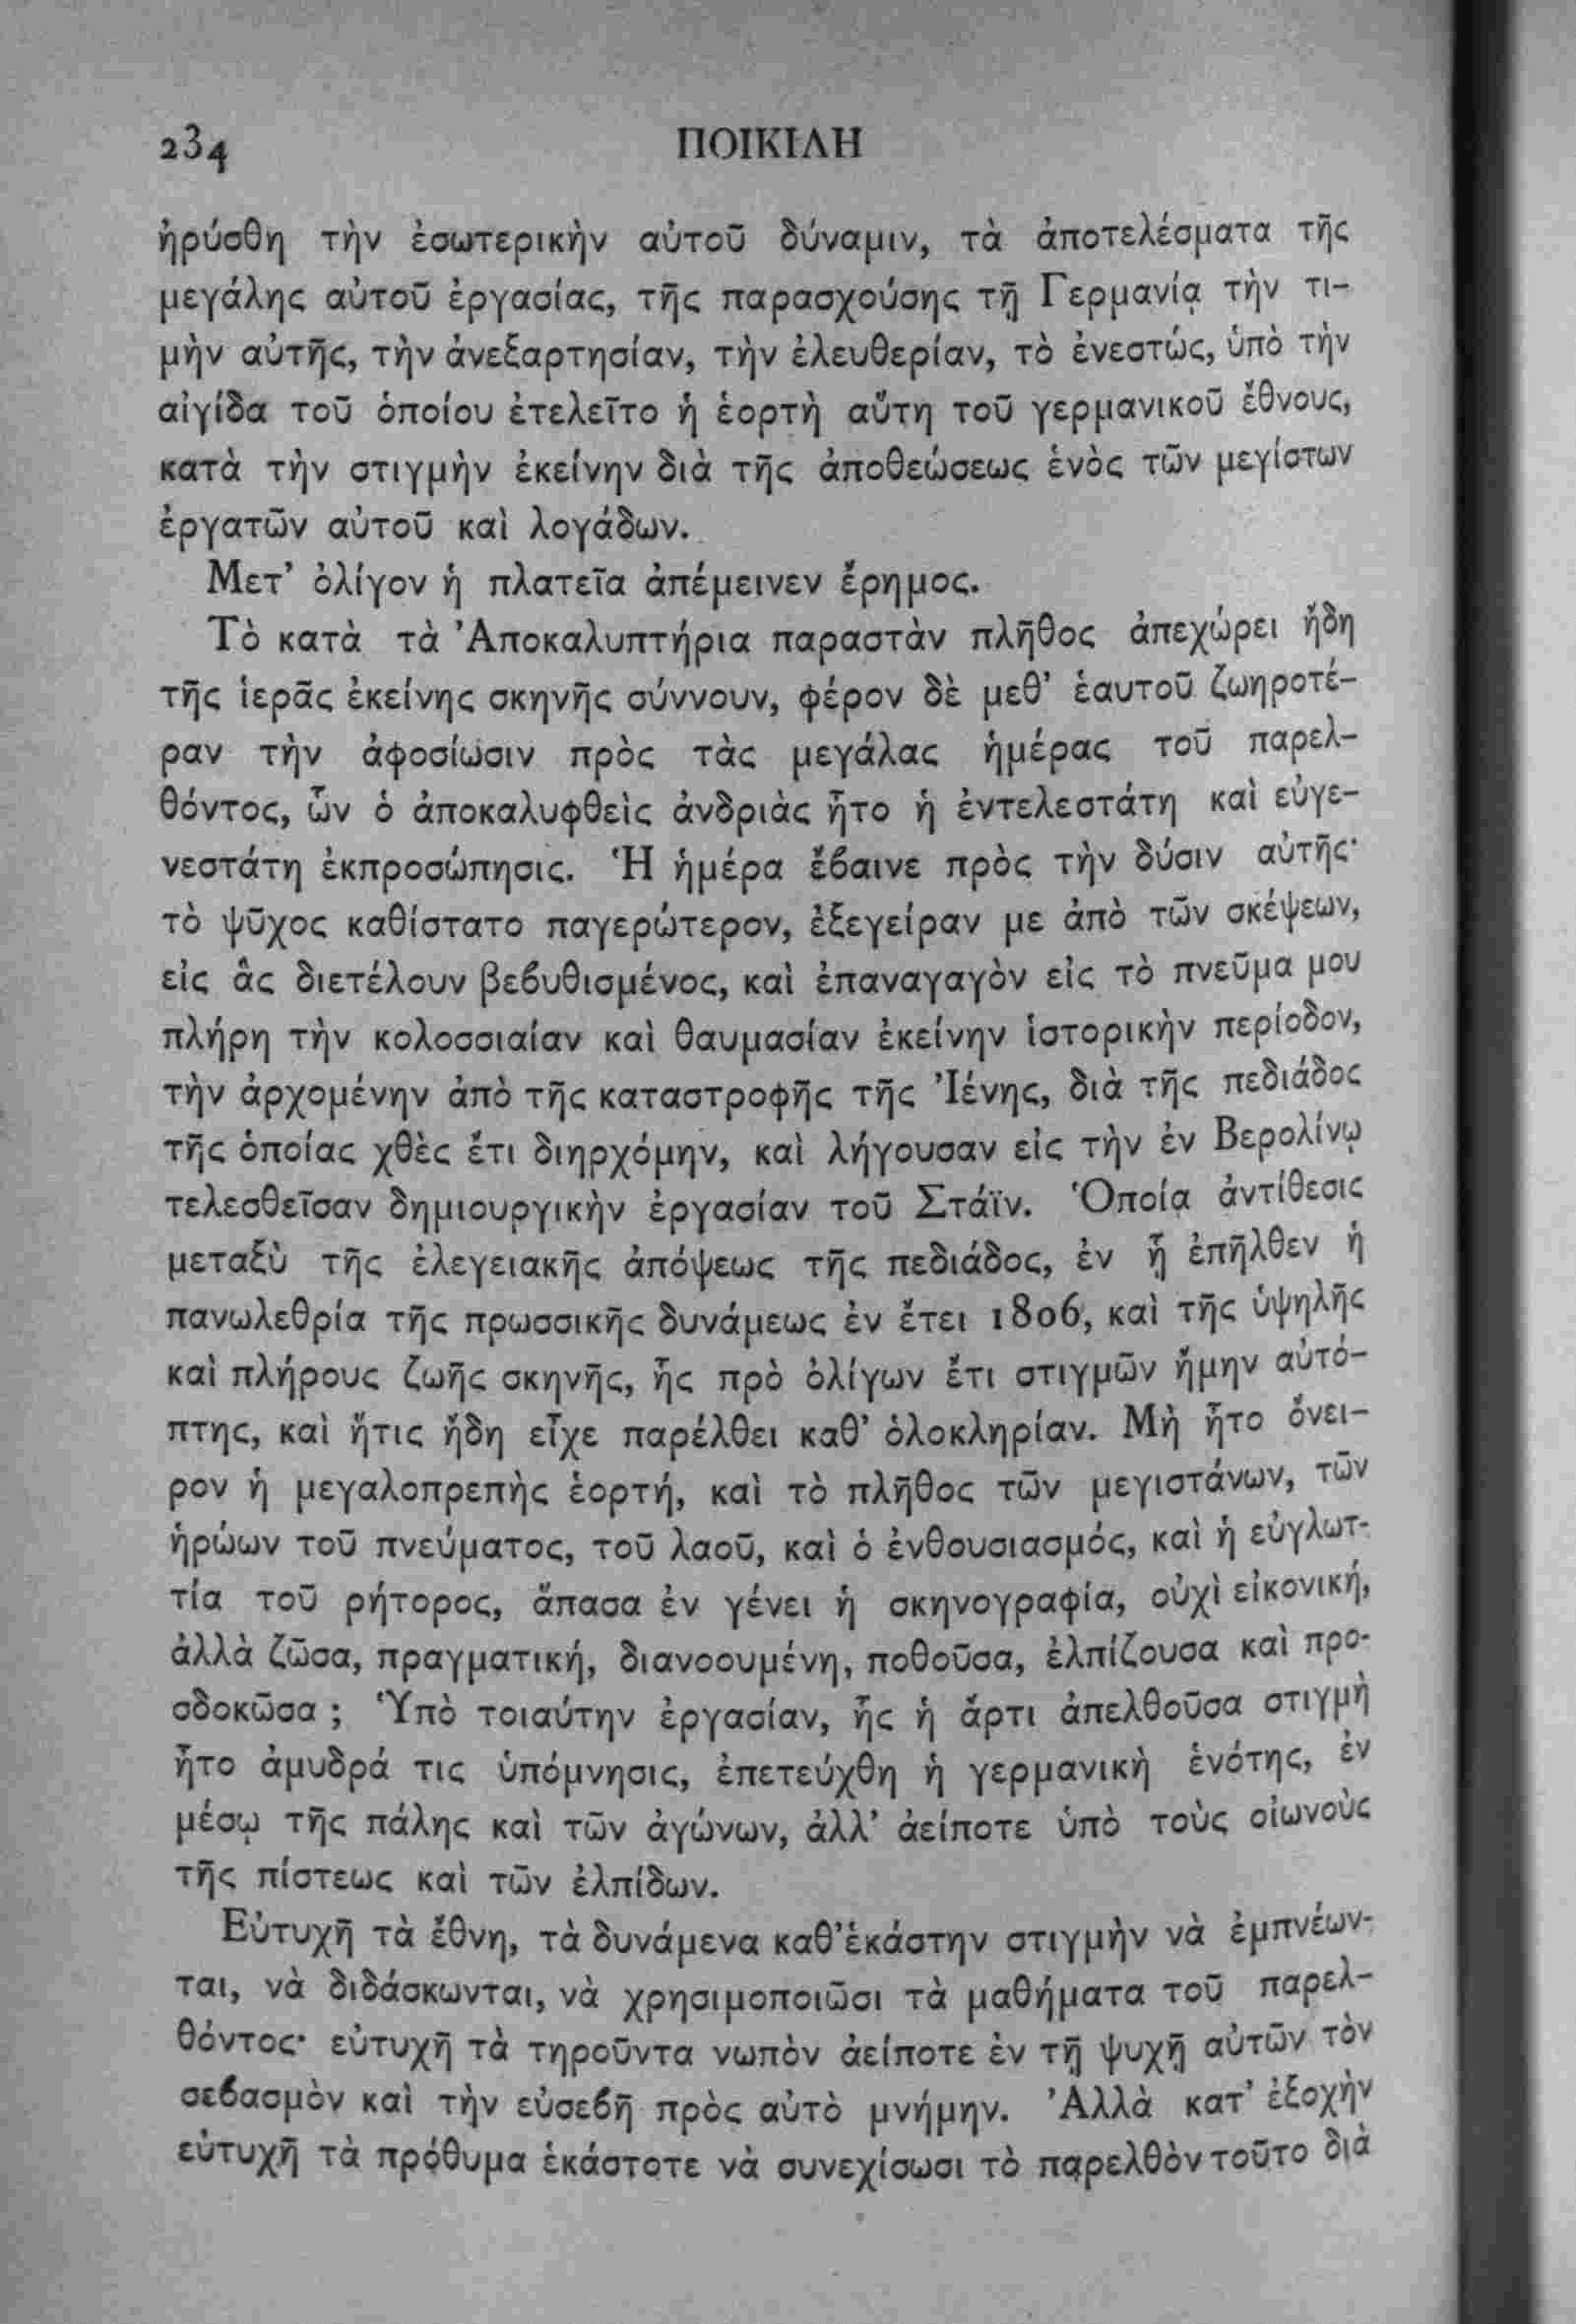 234
ΠΟΙΚΙΛΗ
ἠρύσθη τὴν ἐσωτερικὴν αὐτοῦ δύναμιν, τὰ ἀποτελέσματα τῆς
μεγάλης αὐτοῦ ἐργασίας, τῆς παρασχούσης τῇ Γερμανίᾳ τὴν τι-
μὴν αὐτῆς, τὴν ἀνεξαρτησίαν, τὴν ἐλευθερίαν, τὸ ἐνεστώς, ὑπὸ τὴν
αἰγίδα τοῦ ὁποίου ἐτελεῖτο ἡ ἑορτὴ αὕτη τοῦ γερμανικοῦ ἔθνους,
κατὰ τὴν στιγμὴν ἐκείνην διὰ τῆς ἀποθεώσεως ἑνὸς τῶν μεγίστων
ἐργατῶν αὐτοῦ καὶ λογάδων.
Μετ’ ὀλίγον ἡ πλατεῖα ἀπέμεινεν ἔρημος.
Τὸ κατὰ τὰ Ἀποκαλυπτήρια παραστὰν πλῆθος ἀπεχώρει ἤδη
τῆς ἱερᾶς ἐκείνης σκηνῆς σύννουν, φέρον δὲ μεθ’ ἑαυτοῦ ζωηροτέ-
ραν τὴν ἀφοσίωσιν πρὸς τὰς μεγάλας ἡμέρας τοῦ παρελ-
θόντος, ὧν ὁ ἀποκαλυφθεὶς ἀνδριὰς ἦτο ἡ ἐντελεστάτη καὶ εὐγε-
νεστάτη ἐκπροσώπησις. Ἡ ἡμέρα ἔϐαινε πρὸς τὴν δύσιν αὐτῆς·
τὸ ψῦχος καθίστατο παγερώτερον, ἐξεγείραν με ἀπὸ τῶν σκέψεων,
εἰς ἃς διετέλουν βεϐυθισμένος, καὶ ἐπαναγαγὸν εἰς τὸ πνεῦμα μου
πλήρη τὴν κολοσσιαίαν καὶ θαυμασίαν ἐκείνην ἱστορικὴν περίοδον,
τὴν ἀρχομένην ἀπὸ τῆς καταστροφῆς τῆς Ἰένης, διὰ τῆς πεδιάδος
τῆς ὁποίας χθὲς ἔτι διηρχόμην, καὶ λήγουσαν εἰς τὴν ἐν Βερολίνῳ
τελεσθεῖσαν δημιουργικὴν ἐργασίαν τοῦ Στάϊν. Ὁποία ἀντίθεσις
μεταξὺ τῆς ἐλεγειακῆς ἀπόψεως τῆς πεδιάδος, ἐν ᾗ ἐπῆλθεν ἡ
πανωλεθρία τῆς πρωσσικῆς δυνάμεως ἐν ἔτει 1806, καὶ τῆς ὑψηλῆς
καὶ πλήρους ζωῆς σκηνῆς, ἧς πρὸ ὀλίγων ἔτι στιγμῶν ἤμην αὐτό-
πτης, καὶ ἥτις ἤδη εἶχε παρέλθει καθ’ ὁλοκληρίαν. Μὴ ἦτο ὄνει-
ρον ἡ μεγαλοπρεπὴς ἑορτή, καὶ τὸ πλῆθος τῶν μεγιστάνων, τῶν
ἡρώων τοῦ πνεύματος, τοῦ λαοῦ, καὶ ὁ ἐνθουσιασμός, καὶ ἡ εὐγλωτ-
τία τοῦ ρήτορος, ἅπασα ἐν γένει ἡ σκηνογραφία, οὐχὶ εἰκονική,
ἀλλὰ ζῶσα, πραγματική, διανοουμένη, ποθοῦσα, ἐλπίζουσα καὶ προ-
σδοκῶσα ; Ὑπὸ τοιαύτην ἐργασίαν, ἧς ἡ ἄρτι ἀπελθοῦσα στιγμὴ
ἦτο ἀμυδρά τις ὑπόμνησις, ἐπετεύχθη ἡ γερμανικὴ ἑνότης, ἐν
μέσῳ τῆς πάλης καὶ τῶν ἀγώνων, ἀλλ’ ἀείποτε ὑπὸ τοὺς οἰωνοὺς
τῆς πίστεως καὶ τῶν ἐλπίδων.
Εὐτυχῆ τὰ ἔθνη, τὰ δυνάμενα καθ’ἑκάστην στιγμὴν νὰ ἐμπνέων-
ται, νὰ διδάσκωνται, νὰ χρησιμοποιῶσι τὰ μαθήματα τοῦ παρελ-
θόντος· εὐτυχῆ τὰ τηροῦντα νωπὸν ἀείποτε ἐν τῇ ψυχῇ αὐτῶν τὸν
σεϐασμὸν καὶ τὴν εὐσεϐῆ πρὸς αὐτὸ μνήμην. Ἀλλὰ κατ’ ἐξοχὴν
εὐτυχῆ τὰ πρόθυμα ἑκάστοτε νὰ συνεχίσωσι τὸ παρελθὸν τοῦτο διὰ